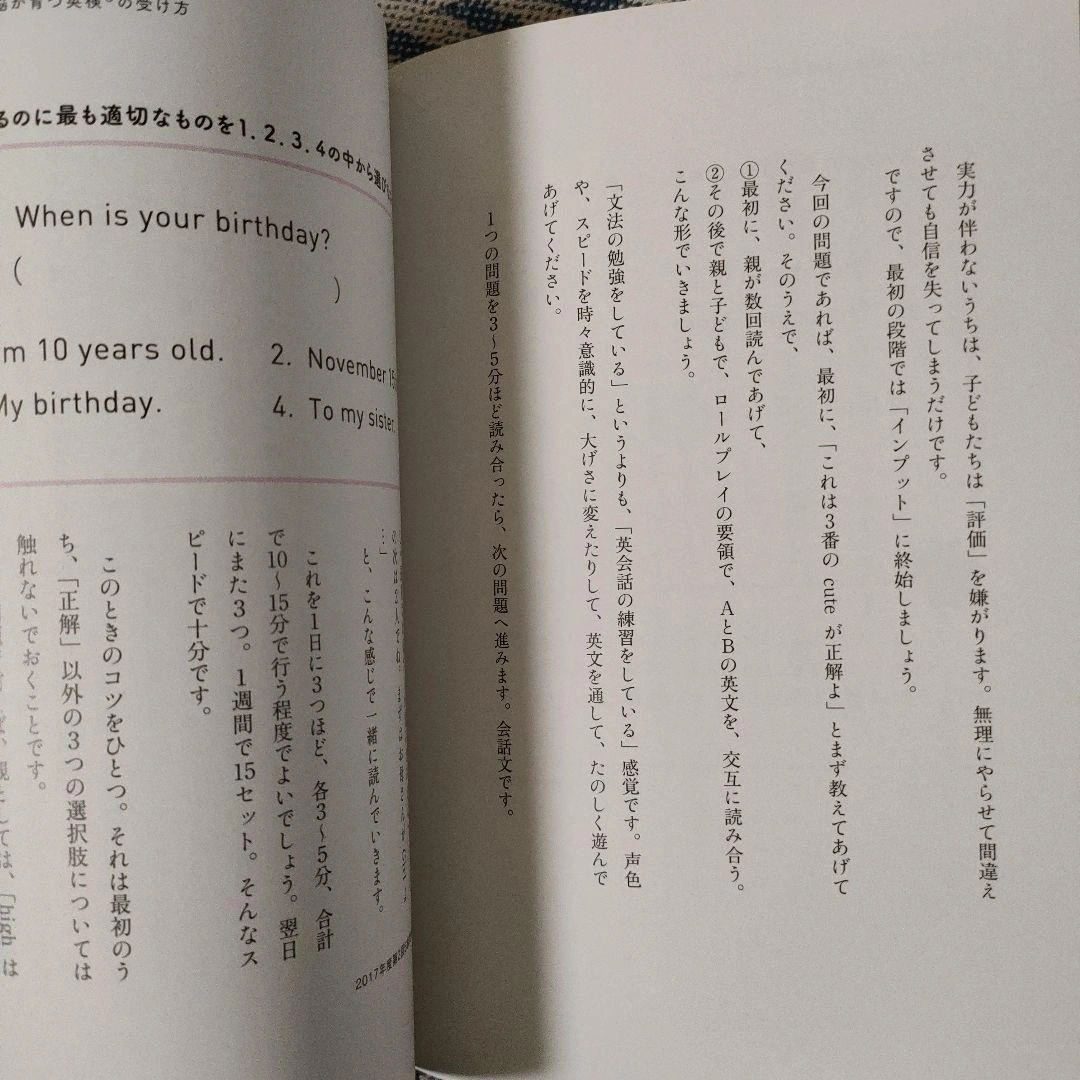 実力が伴わないうちは、子どもたちは「評価」を嫌がります。無理にやらせて間違え
させても自信を失ってしまうだけです。
ですので、最初の段階では「インプット」に終始しましょう。
今回の問題であれば、最初に、「これは3番の cute が正解よ」とまず教えてあげて
ください。そのうえで、
①最初に、親が数回読んであげて、
②その後で親と子どもで、ロールプレイの要領で、AとBの英文を、交互に読み合う。
こんな形でいきましょう。
「文法の勉強をしている」というよりも、「英会話の練習をしている」感覚です。声色
や、スピードを時々意識的に、大げさに変えたりして、英文を通して、たのしく遊んで
あげてください。
1つの問題を3〜5分ほど読み合ったら、次の問題へ進みます。会話文です。
が育つ英検®の受け方
るのに最も適切なものを1. 2. 3. 4の中から選び
When is your birthday?
( )
m 10 years old.
2. November 15
My birthday.
4. To my sister.
2017年度第2回
と、こんな感じで一緒に読んでいきます。
これを1日に3つほど、各3〜5分、合計
で10〜15分で行う程度でよいでしょう。翌日
にまた3つ。1週間で15セット。そんなス
ピードで十分です。
このときのコツをひとつ。それは最初のう
ち、「正解」以外の3つの選択肢については
触れないでおくことです。